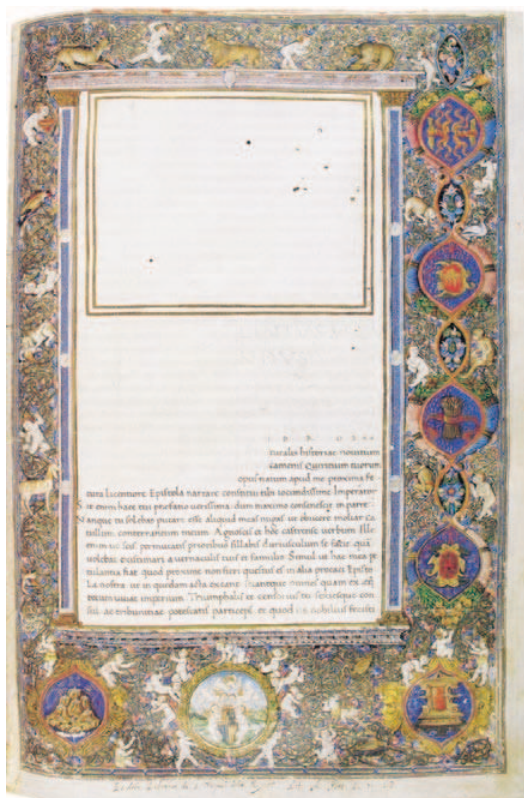 I B R O S N A
turalis historiae novitium
camenis Quiritium tuorum
opus natum apud me proxima fe
tura licentiore Epistola narrare constitui tibi iocundissime Imperator
Sit enim haec tui prefatio verissima: dum maximo consenescit in patre
Nanque tu solebas putare esse aliquid meas nugas ut obiicere moliar ca
tullum conterraneum meum Agnoscis et hoc castrense verbum Ille
enim ut scis permutatis prioribus sillabis duriusculum se fecit quam
volebat existimari a vernaculis tuis et famulis Simul ut hac mea pe
tulantia fiat quod proxime non fieri questus es in alia procaci Episto
La nostra ut in quedam acta exeant omnes quam ex
tecum vivat imperium. Triumphalis et censorius tu sexiesque con
sul ac tribunitiae potestatis particeps et quod nobilius fecisti